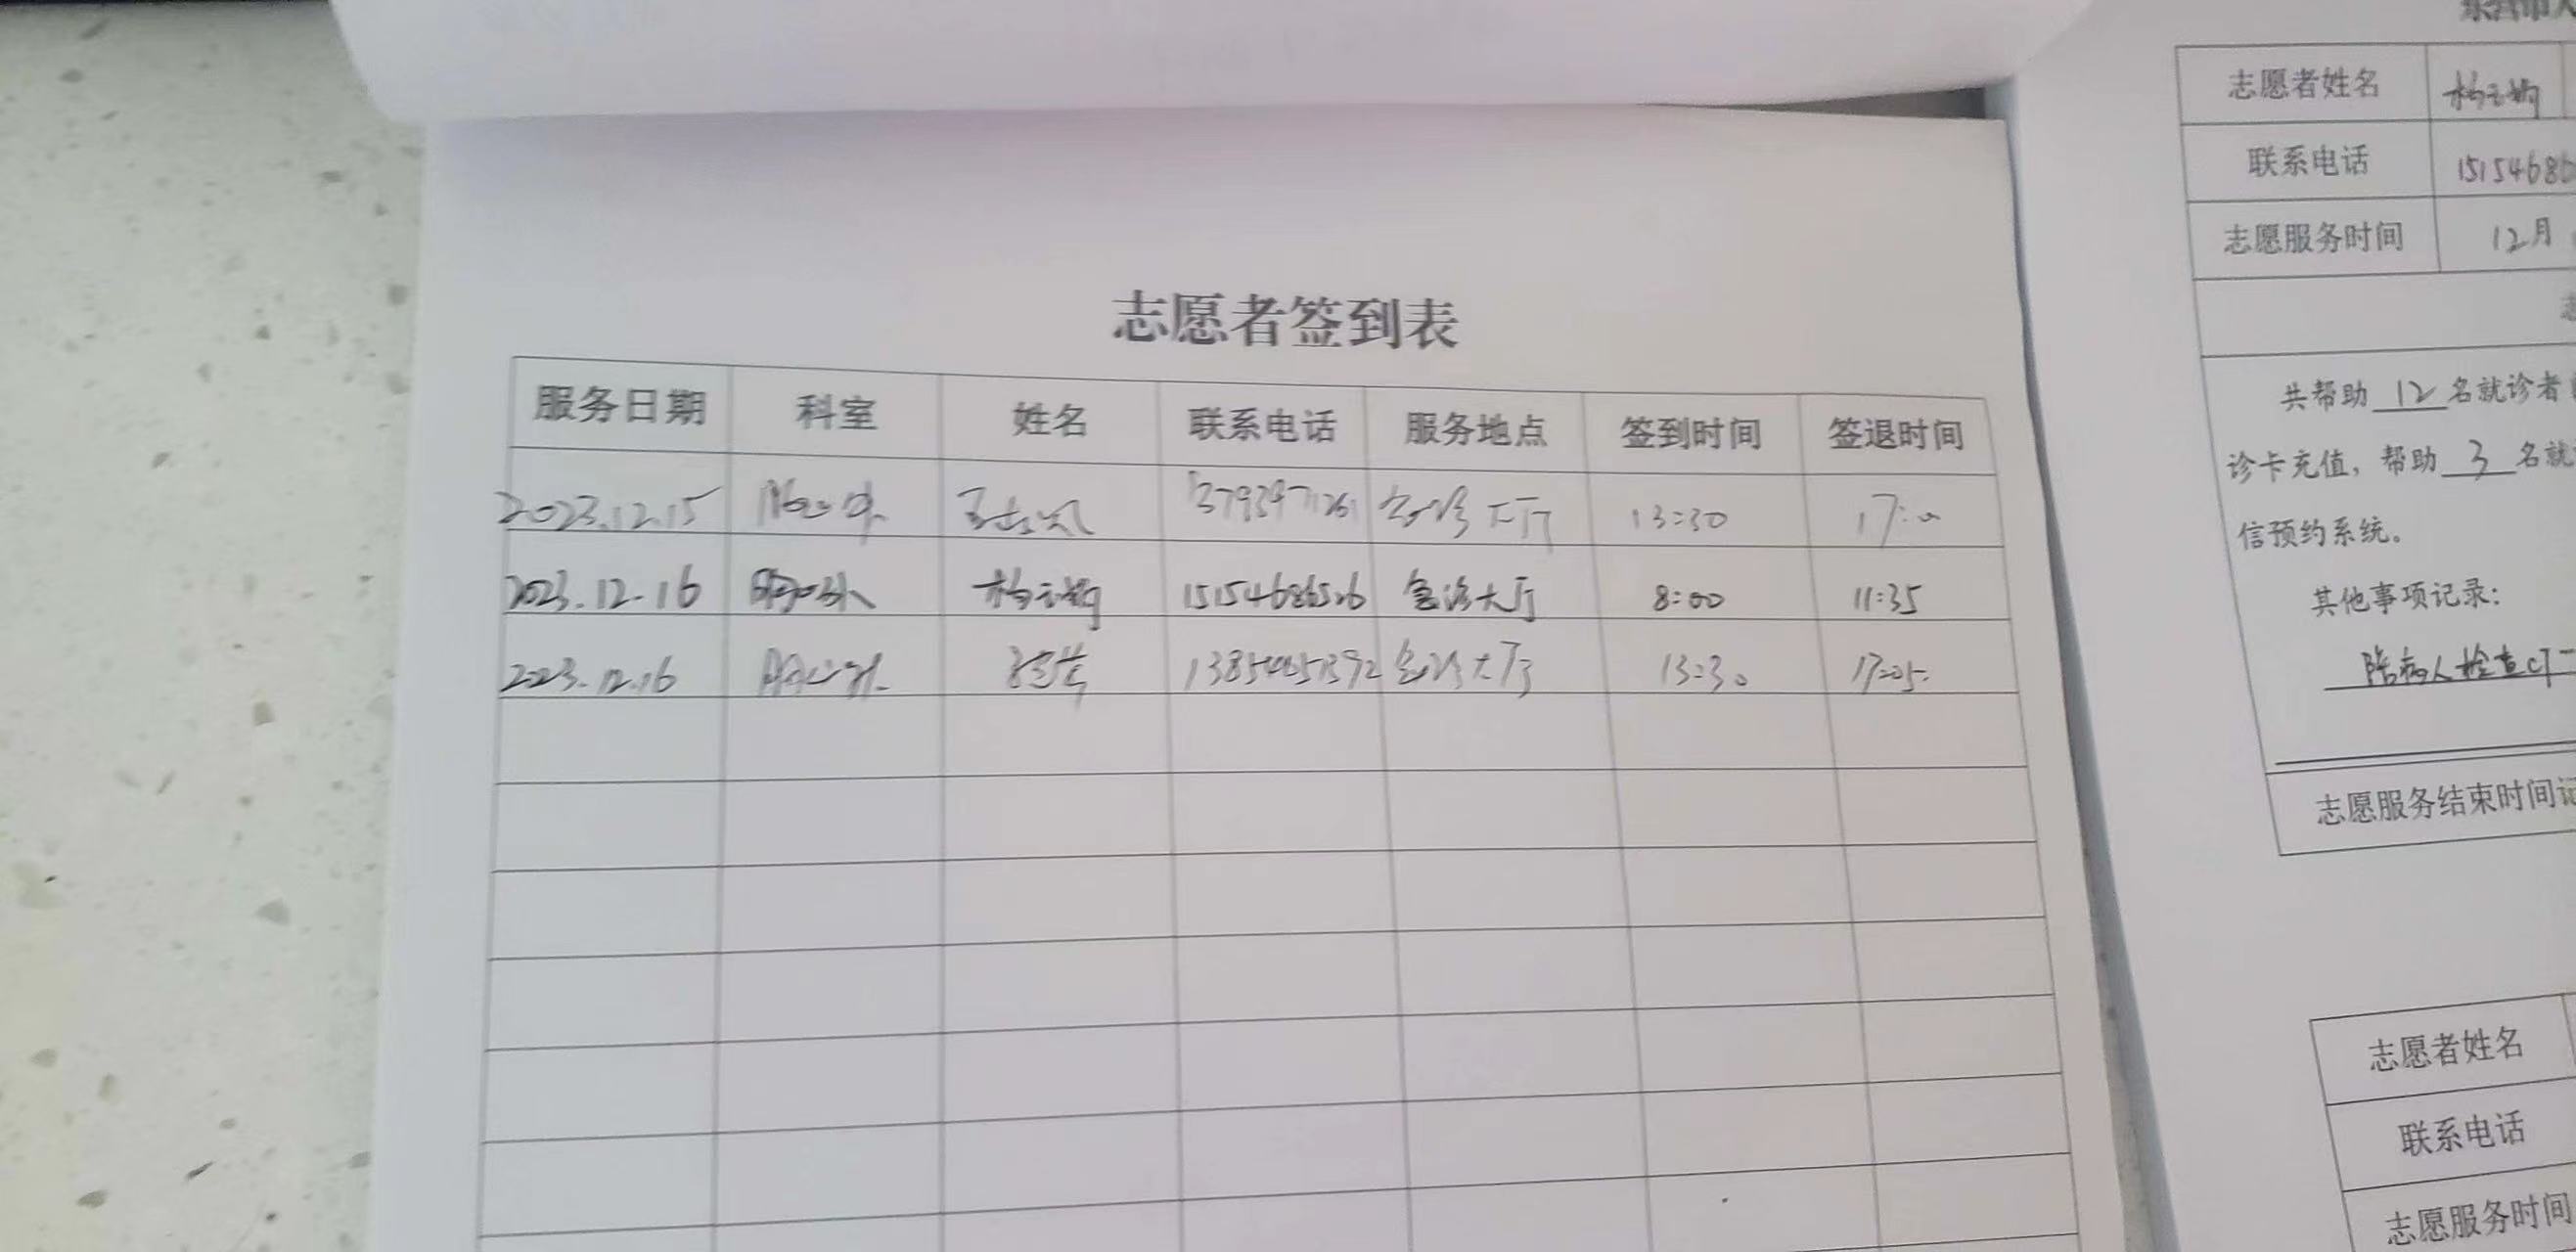 志愿者签到表
服务日期 科室 姓名 联系电话 服务地点 签到时间 签退时间
2023.12.15 胸心外 13793971261 急诊大厅 13:30 17:00
2023.12.16 胸心外 15154686526 急诊大厅 8:00 11:35
2023.12.16 胸心外 急诊大厅 13:30 17:05
志愿者姓名
联系电话 15154686
志愿服务时间 12月
共帮助 12 名就诊者
诊卡充值，帮助 3 名就
信预约系统。
其他事项记录：
陪病人检查CT
志愿服务结束时间记
志愿者姓名
联系电话
志愿服务时间